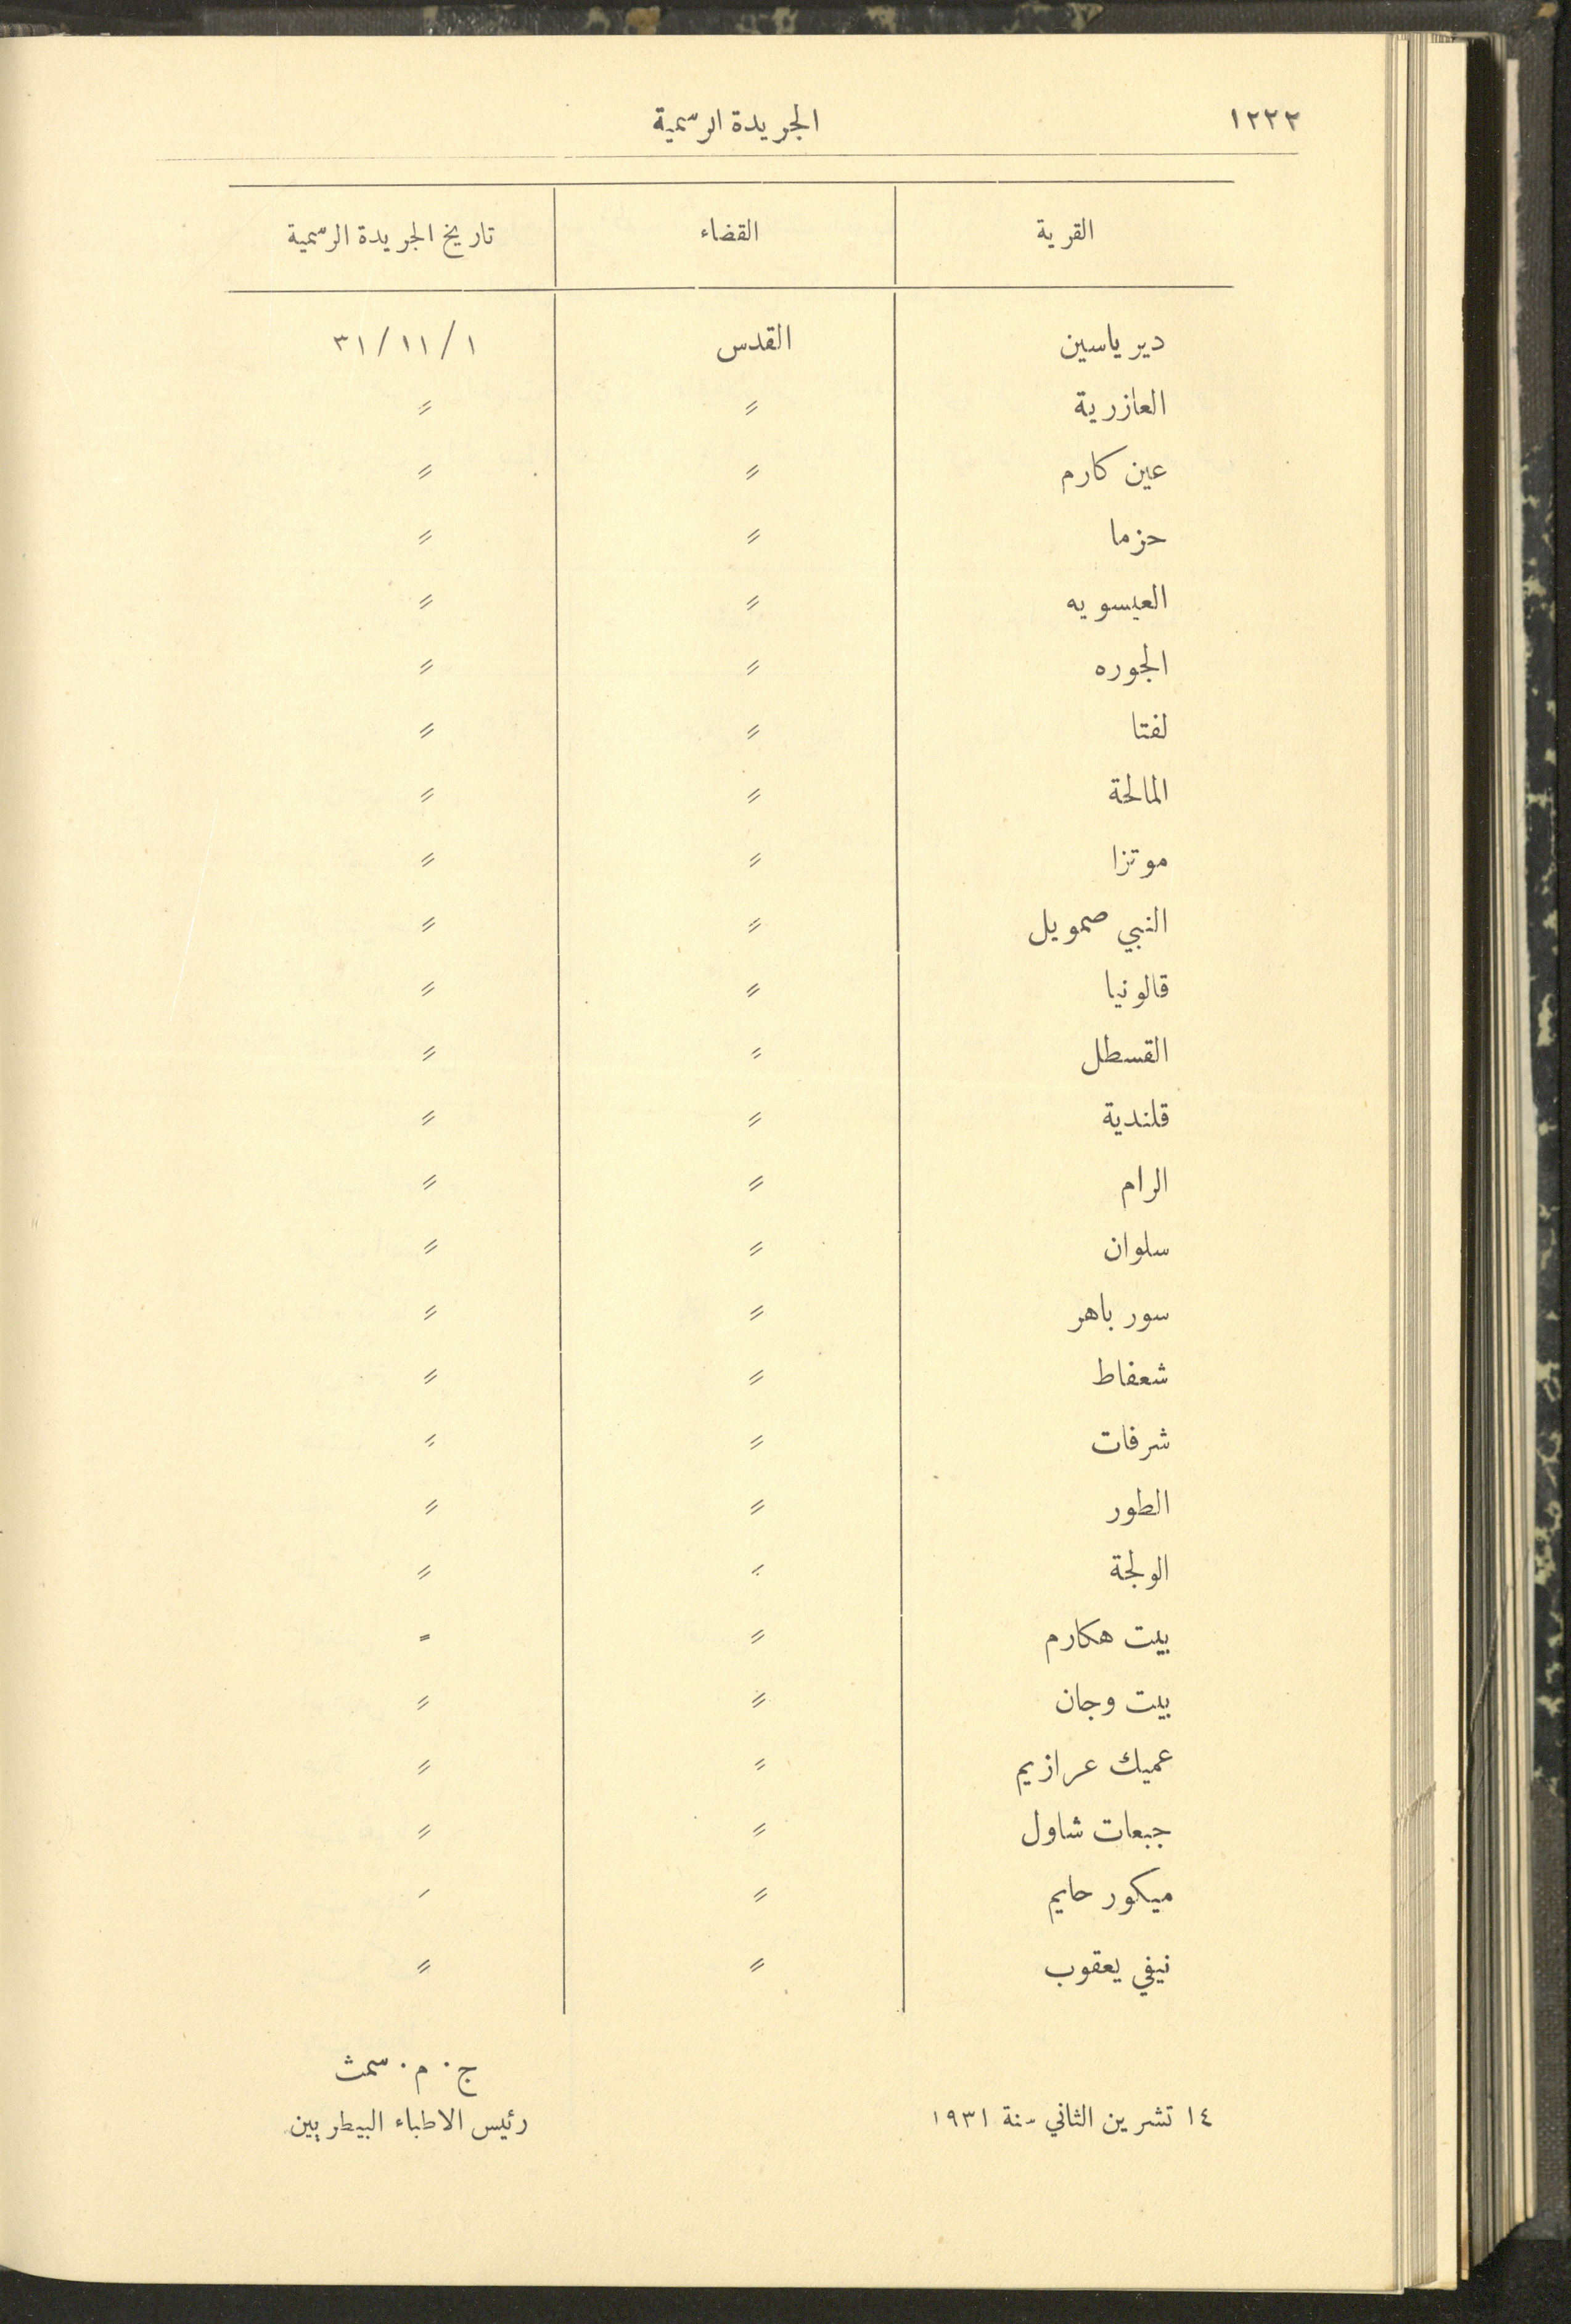 ١٢٢٢ الجريدة الرسمية
القرية القضاء تاريخ الجريدة الرسمية
دير ياسين القدس ١/١١/٣١
العازرية 〃 〃
عين كارم 〃 〃
حزما 〃 〃
العيسويه 〃 〃
الجوره 〃 〃
لفتا 〃 〃
المالحة 〃 〃
موتزا 〃 〃
النبي صمويل 〃 〃
قالونيا 〃 〃
القسطل 〃 〃
قلندية 〃 〃
الرام 〃 〃
سلوان 〃 〃
سور باهر 〃 〃
شعفاط 〃 〃
شرفات 〃 〃
الطور 〃 〃
الولجة 〃 〃
بيت هكارم 〃 〃
بيت وجان 〃 〃
عميك عرازيم 〃 〃
جبعات شاول 〃 〃
ميكور حايم 〃 〃
نيفي يعقوب 〃 〃
ج. م. سمث
١٤ تشرين الثاني سنة ١٩٣١ رئيس الاطباء البيطريين